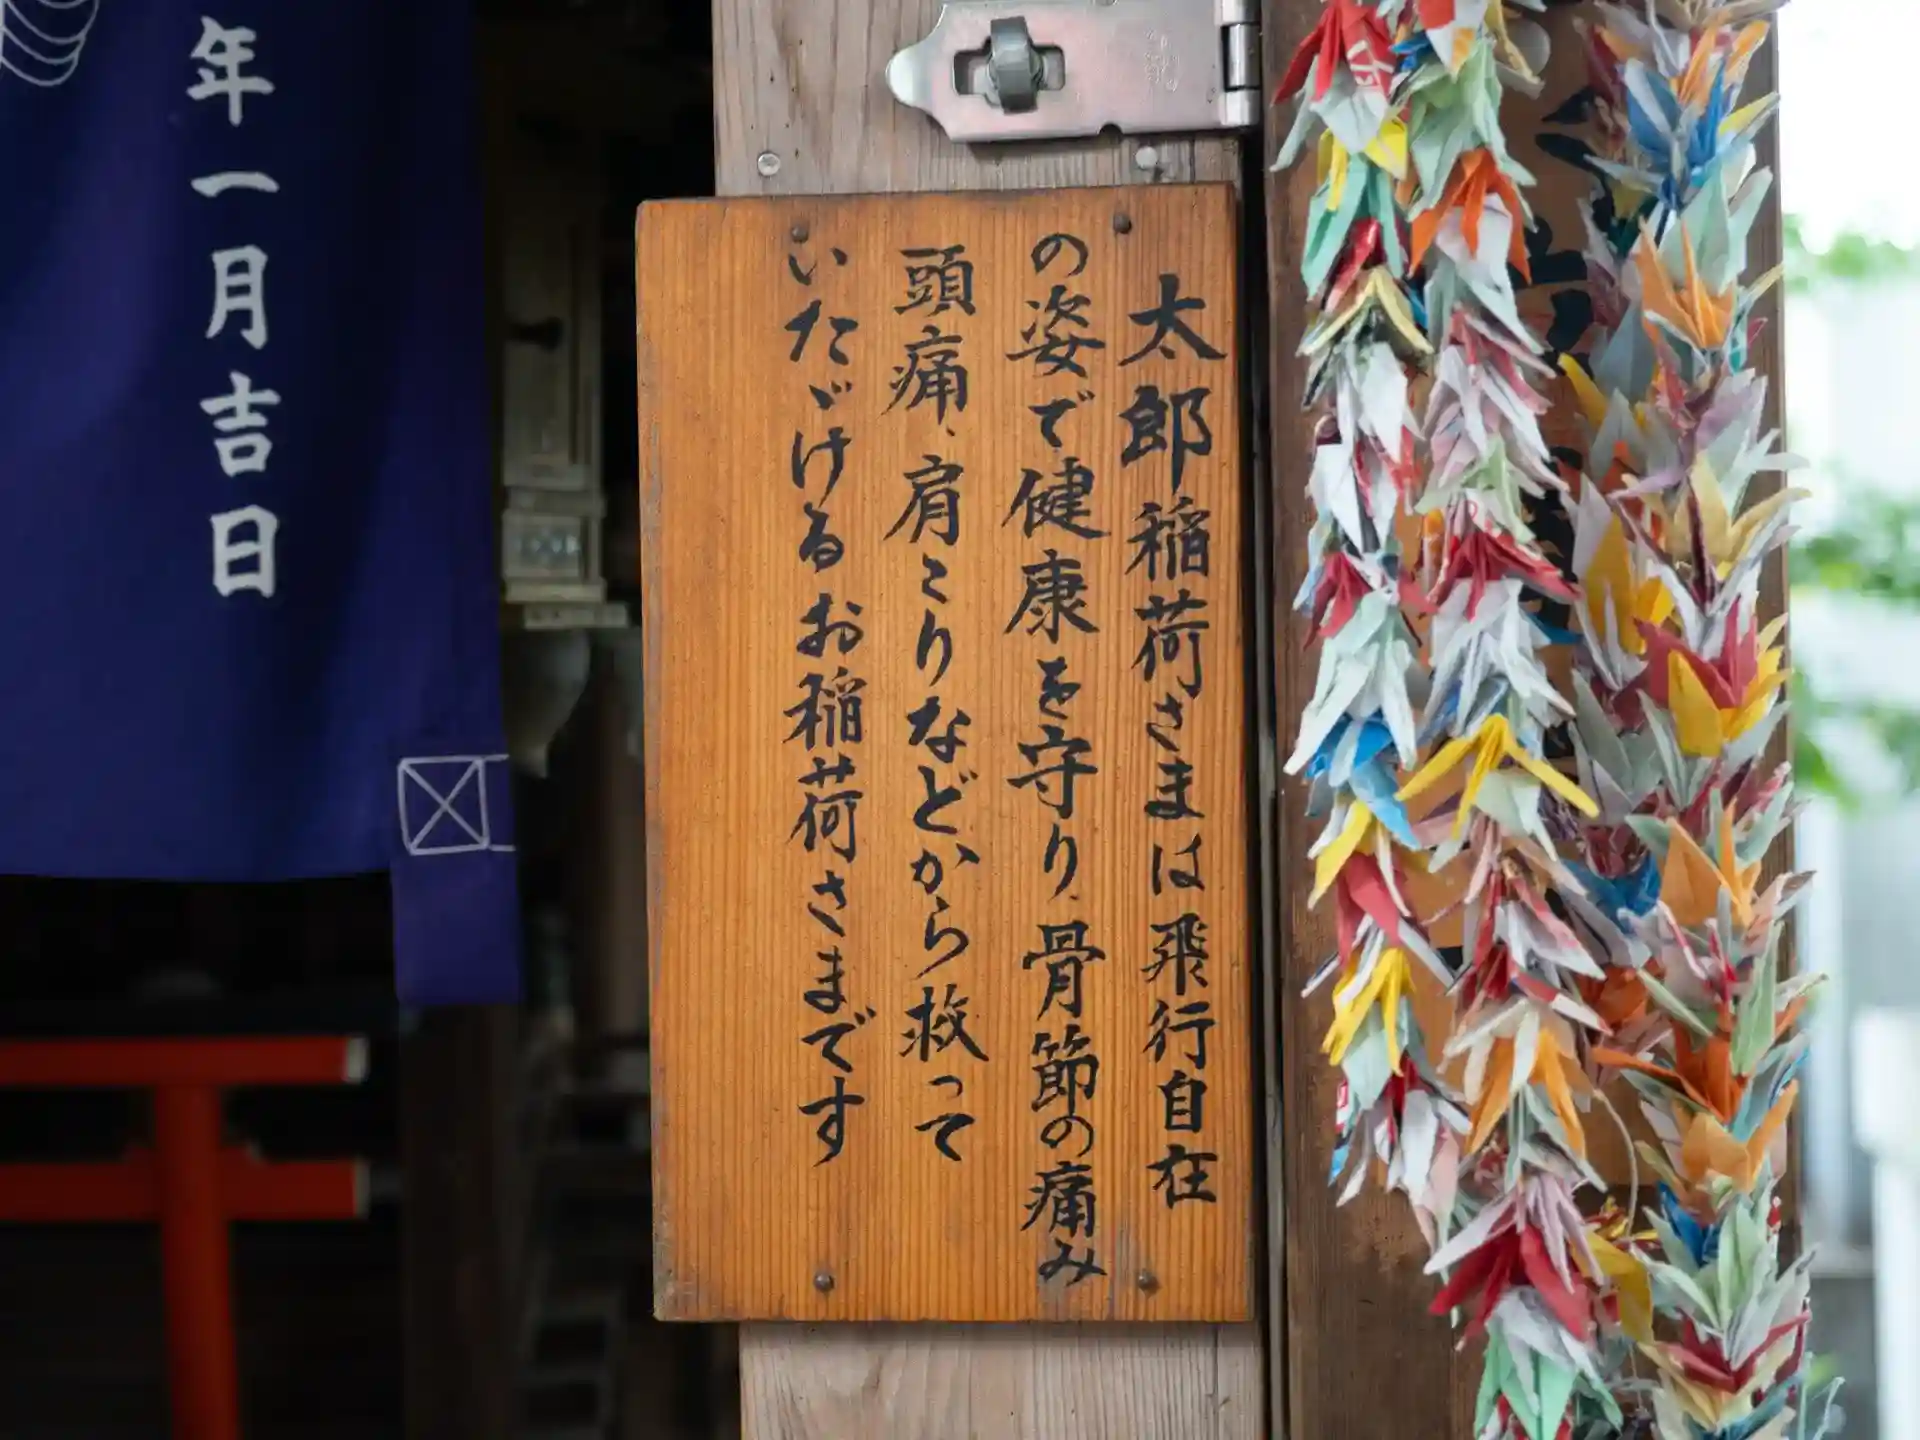 太郎稲荷さまは飛行自在
の姿で健康を守り、骨節の痛み
頭痛、肩こりなどから救って
いたゞけるお稲荷さまです
年一月吉日